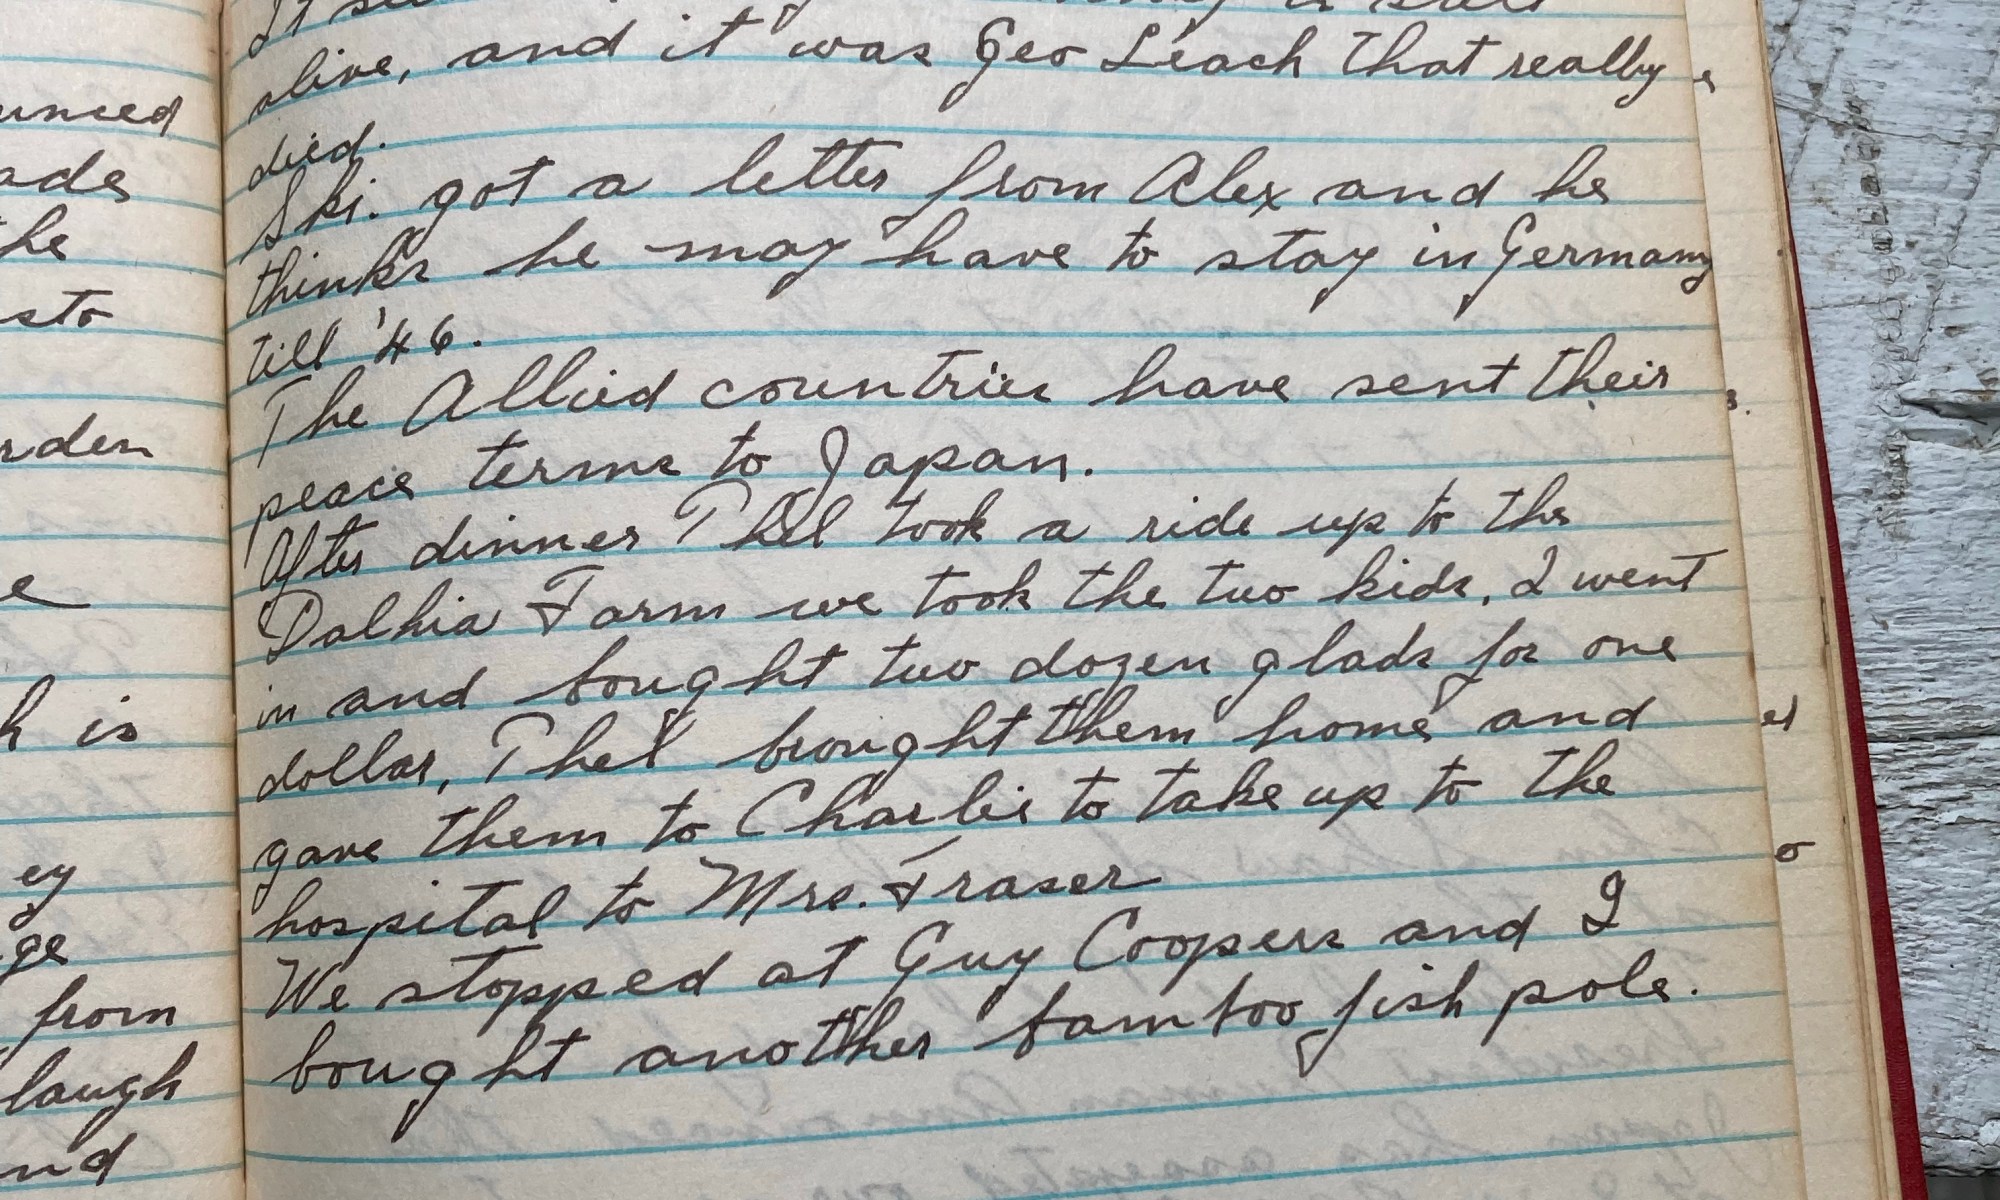 unced
ades
he
sto
rden
e
h is
ey
ge
from
laugh
nd
alive, and it was Geo Leach that really
died.
Ski. got a letter from Alex and he
thinks he may have to stay in Germany
till '46.
The Allied countries have sent their
peace terms to Japan.
After dinner Thel took a ride up to the
Dalhia Farm we took the two kids, I went
in and bought two dozen glads for one
dollar, Thel brought them home and
gave them to Charlie to take up to the
hospital to Mrs. Fraser
We stopped at Guy Coopers and I
bought another bamboo fish pole.